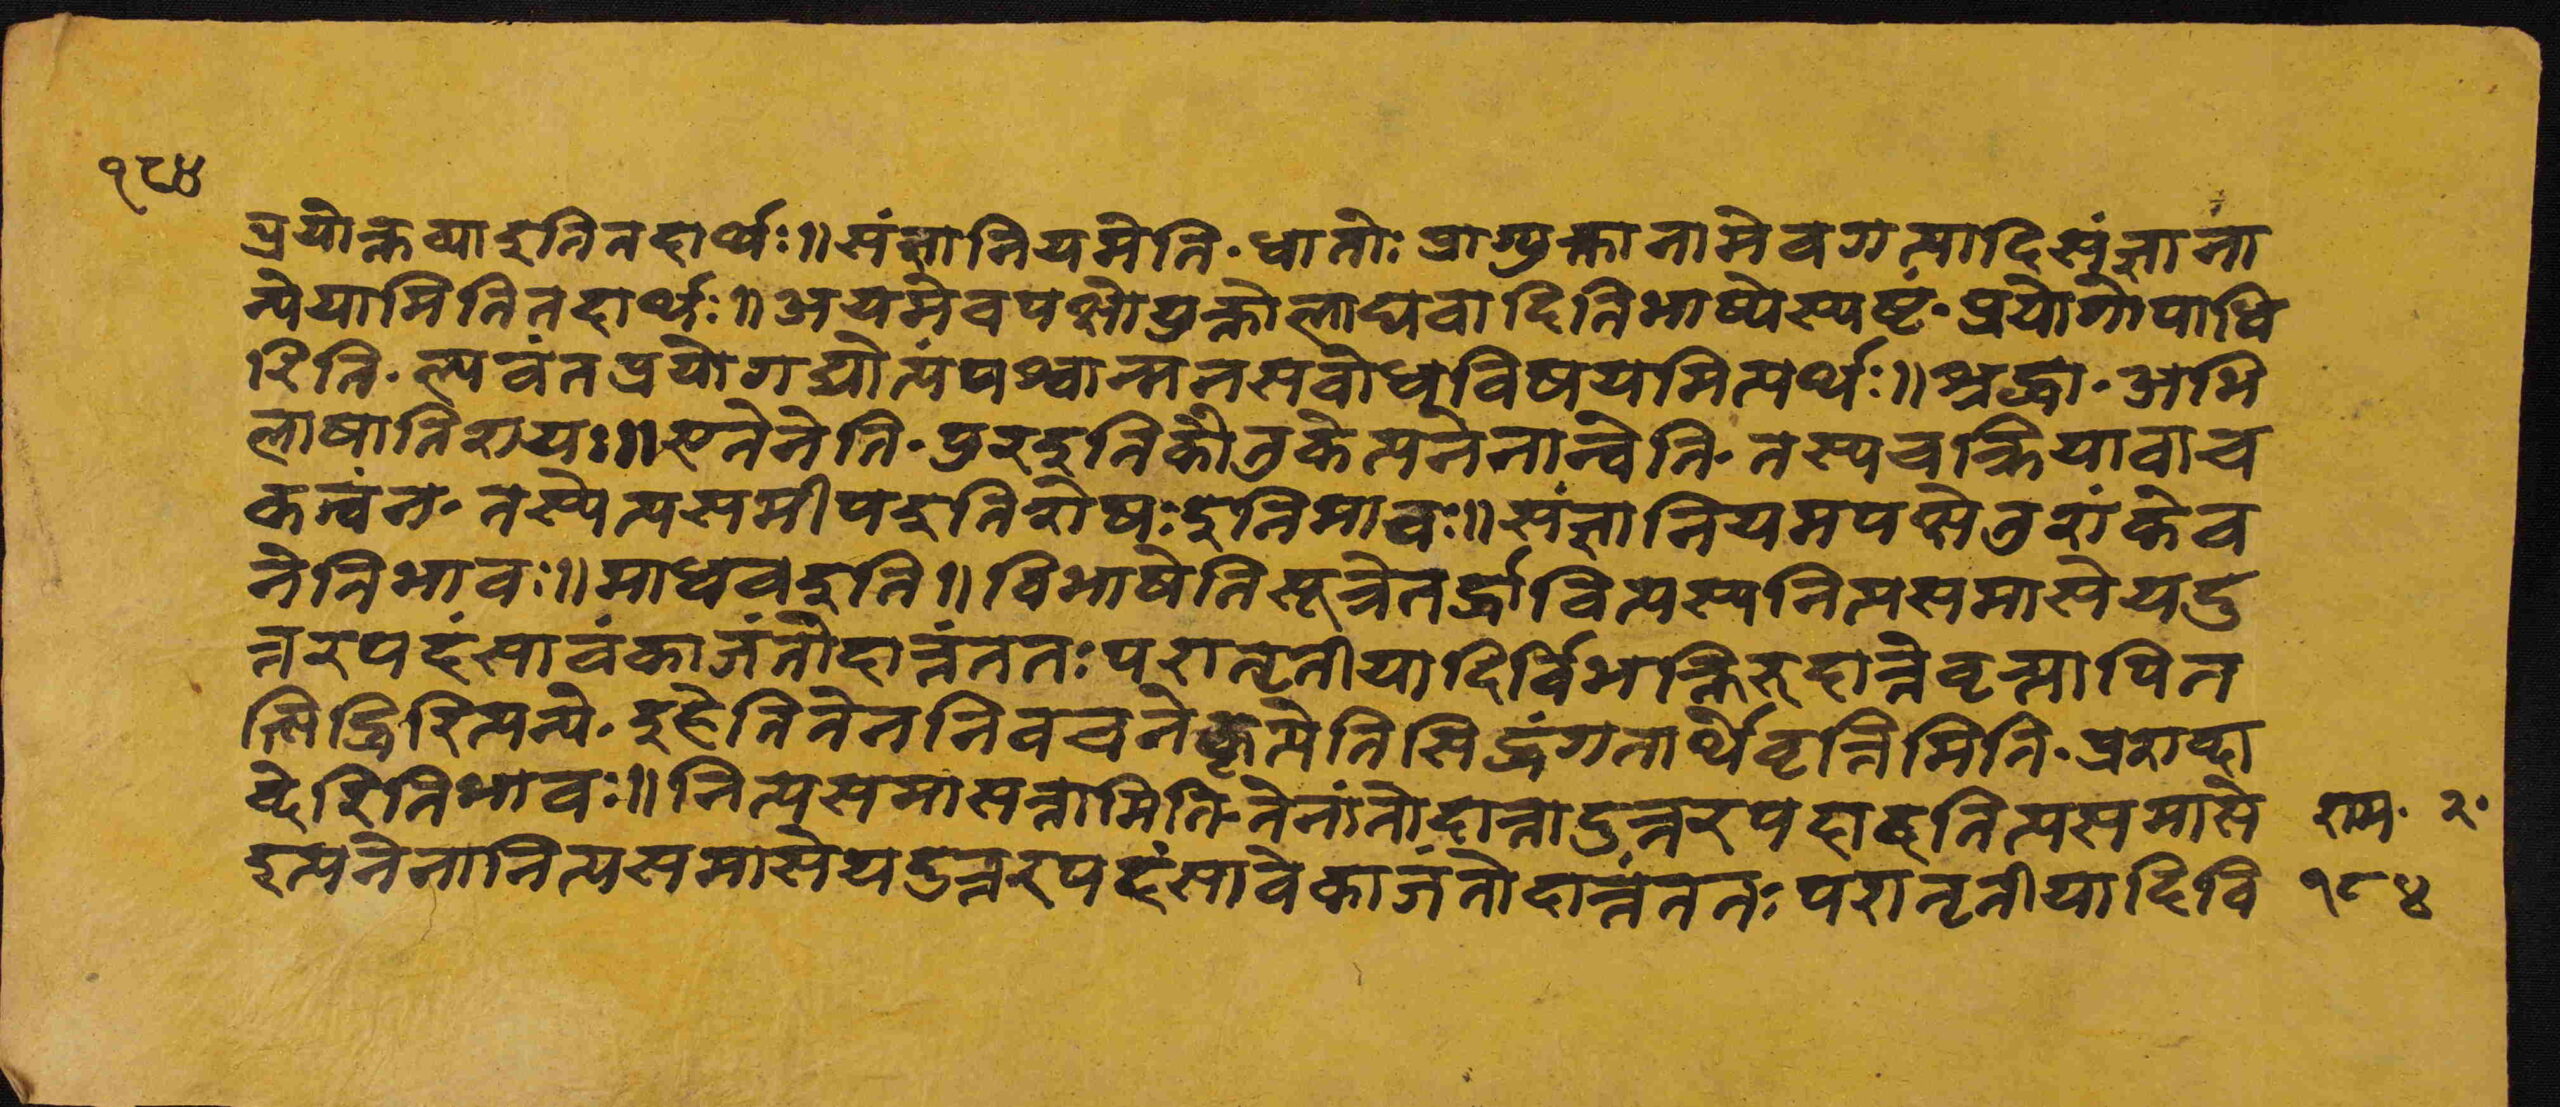 १८४
प्रयोक्तव्या इति तदार्थः॥ संज्ञानियमेति॰ धातोः प्राग्युक्तानामेव गत्यादिसंज्ञाना
न्येयामिति तदार्थः॥ अयमेव पक्षो युक्तो लाघवादिति भाष्ये स्पष्टं॰ प्रयोगोपाधि
रिति॰ ल्पवंतप्रयोगद्योत्यं पश्चान्मनसवोध्यविषयमित्यर्थः॥ श्रद्धा॰ अभि
लाषातिशयः॥ एतेनेति॰ पुरइति कौतुकेत्यनेनान्वेति॰ तस्य च क्रियावाच
कत्वं न॰ तस्येत्यसमीप इति शेषः इति भावः॥ संज्ञानियमपक्षे तु शंकैव
नेति भावः॥ माधव इति॥ विभाषेति सूत्रे तर्द्धावित्यस्य नित्यसमासे यदु
त्तरपदं सावंकाजंतोदात्तं ततः परा तृतीयादिर्विभक्तिरुदात्ते वृत्त्यापि न
त्सिद्धिरित्यन्ये॰ इहेति तेन निवचनेकृत्येति सिद्धं गतार्थे वृत्तिमिति॰ प्रशब्दा
देरिति भावः॥ नित्यसमासत्तामिति॰ तेनांतोदात्तादुत्तरपदादनित्यसमासे
इत्यनेनानित्यसमासे यदुत्तरपदं सावेकाजंतोदात्तं ततः परा तृतीयादिवि
राम॰ २॰
१८४